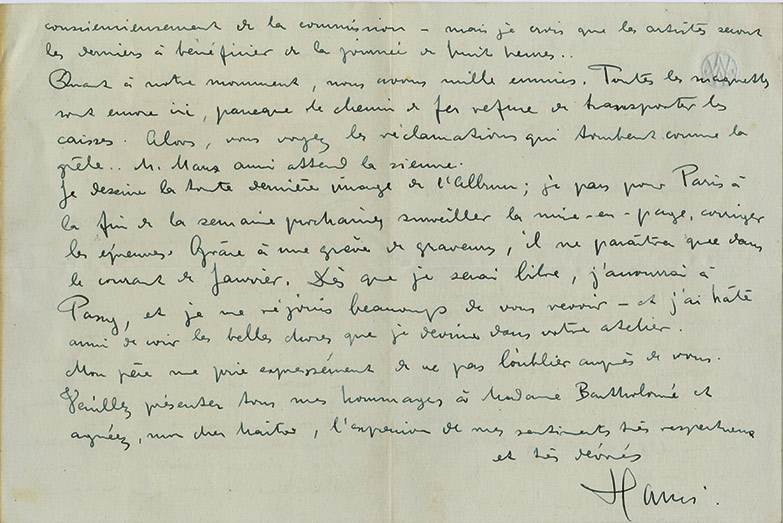 consciencieusement de la commission – mais je crois que les artistes seront
les derniers à bénéficier de la journée de huit heures..
Quant à notre monument, nous avons mille ennuis. Toutes les maquettes
sont encore ici, parce que le chemin de fer refuse de transporter les
caisses. Alors, vous voyez les réclamations qui tombent comme la
grêle.. M. aussi attend la sienne.
Je dessine la toute dernière image de l'Album; je pars pour Paris à
la fin de la semaine prochaine, surveiller la mise-en-page, corriger
les épreuves. Grâce à une grève de graveurs, il ne paraîtra que dans
le courant de Janvier. Dès que je serai libre, j'accourrai à
Passy, et je me réjouis beaucoup de vous revoir – et j'ai hâte
aussi de voir les belles choses que je devine dans votre atelier.
Mon père me prie expressément de ne pas l'oublier auprès de vous.
Veuillez présenter tous mes hommages à Madame Bartholomé et
agréez, mon cher Maître, l'expression de mes sentiments très respectueux
et très dévoués
Hansi.